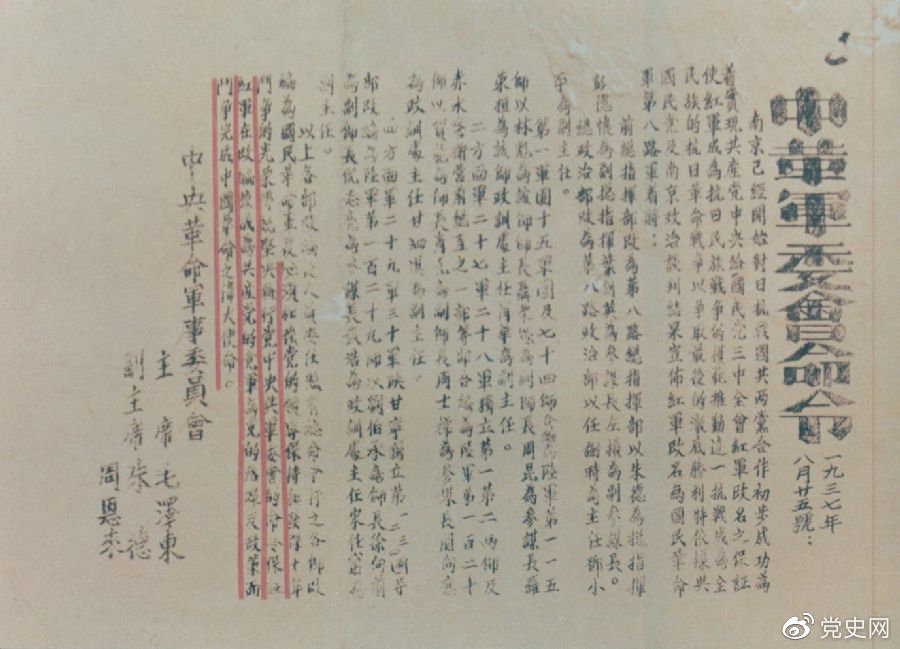 中革軍委會命令
一九三七年
八月廿五號：
南京已經開始對日抗戰國共兩黨合作初步成功為
着實現共産党中央給國民党三中全會紅軍改名之保証
使紅軍成為抗日民族戰爭的模範推動這一抗戰成為全
民族的抗日革命戰爭以爭取最後的徹底勝利特依據共
國民党及南京政治談判結果宣佈紅軍改名為國民革命
軍第八路軍着將：
前總指揮部改為第八路總指揮部以朱德為總指揮
彭德懷為副總指揮葉劍英為參謀長左權為副參謀長。
總政治部改為第八路政治部以任弼時為主任鄧小
平為副主任。
第一軍團十五軍團及七十四師合編為陸軍第一一五
師以林彪為該師師長聶榮臻為副師長周昆為參謀長羅
榮桓為該師政訓處主任肖華為副主任。
二方面軍二十七軍二十八軍獨立第一第二兩師及
赤水警衛營前總直之一部等部合編為陸軍第一百二十
師以賀龍為師長肖克為副師長周士提為參謀長關向應
為政訓處主任甘泗淇為副主任。
四方面軍二十九軍三十軍陝甘寧獨立第一二三四等
部改編為陸軍第一百二十九師以劉伯承為師長徐向前
為副師長倪志亮為參謀長張浩為政訓處主任宋任窮為
副主任。
以上各部改編後人員委任照前總命令行之各師改
編為國民革命軍後必須加強党的領導保持和發揮十年
鬥爭的光榮傳統堅決執行党中央與軍委會的命令保証
紅軍在改編後成為共産党的党軍為党的路線及政策而
鬥爭完成中國革命之偉大使命。
中央革命軍事委員會
主席毛澤東
副主席朱德
周恩來
党史网